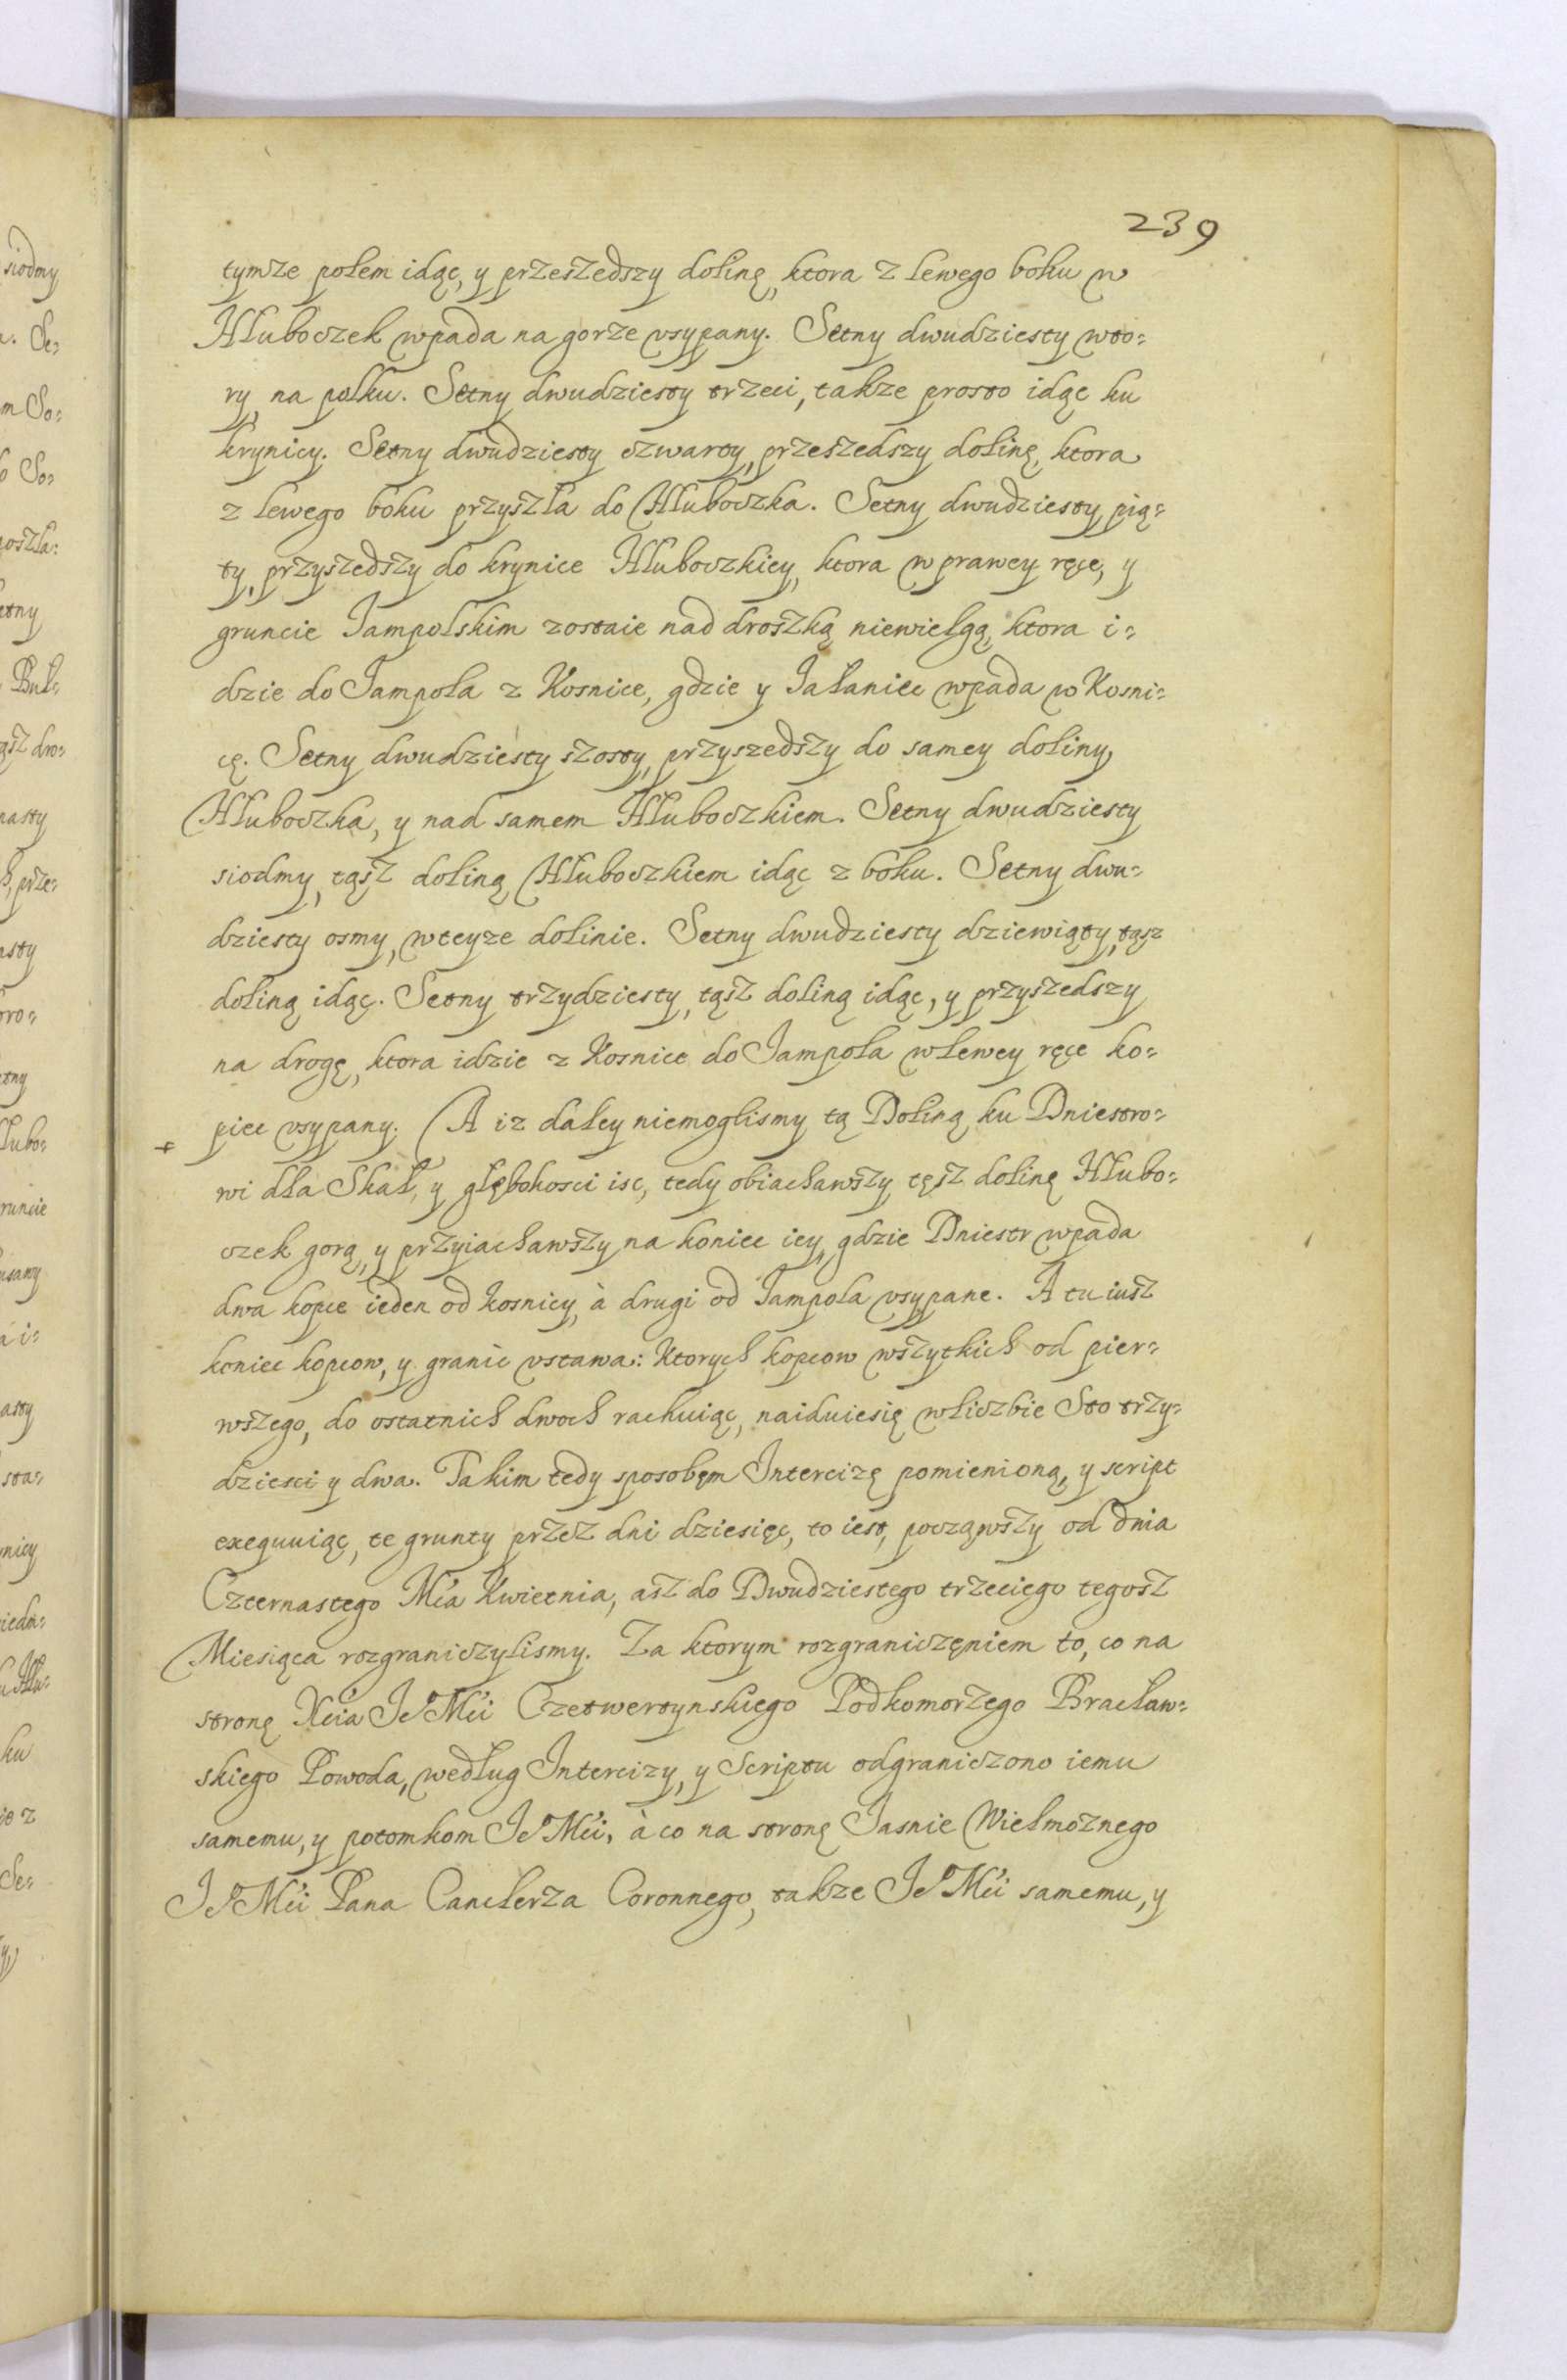 239
tymze polem idąc, y przeszedszy dolinę, ktora z lewego boku w
Hłuboczek wpada na gorze vsypany. Setny dwudziesty wto=
ry, na polku. Setny dwudziesty trzeci, takze prosto idąc ku
krynicy. Setny dwudziesty czwarty, przeszedszy dolinę, ktora
z lewego boku przyszła do Hłuboczka. Setny dwudziesty pią=
ty, przyszedszy do krynice Hłuboczkiey, ktora w prawey ręce, y
gruncie Jampolskim zostaie nad droszką niewielgą, ktora i=
dzie do Jampola z Kosnice, gdzie y Jałaniec wpada w Kosni=
cę. Setny dwudziesty szosty, przyszedszy do samey doliny
Hłuboczka, y nad samem Hłuboczkiem. Setny dwudziesty
siodmy, tąsz doliną Hłuboczkiem idąc z boku. Setny dwu=
dziesty osmy, wteyze dolinie. Setny dwudziesty dziewiąty, tąsz
doliną idąc. Setny trzydziesty, tąsz doliną idąc, y przyszedszy
na drogę, ktora idzie z Kosnice do Jampola wlewey ręce ko=
+ piec vsypany. A iz daley niemoglismy tą Doliną ku Dniestro=
wi dla Skał, y głębokosci isc, tedy obiachawszy tęsz dolinę Hłubo=
czek gorą, y przyiachawszy na koniec iey, gdzie Dniestr wpada
dwa kopce ieden od Kosnicy, à drugi od Jampola vsypane. A tu iusz
koniec kopcow, y granic vstawa: Ktorych kopcow wszytkich od pier=
wszego, do ostatnich dwoch rachuiąc, naiduiesię wliczbie Sto trzy=
dziesci y dwa. Takim tedy sposobęm Intercizę pomienioną, y script
exequuiąc, te grunty przez dni dziesięc, to iest, począwszy od dnia
Czternastego Mca Kwietnia, asz do Dwudziestego trzeciego tegosz
Miesiąca rozgraniczylismy. Za ktorym rozgraniczęniem to, co na
stronę Xcia Je° Mci Czetwertynskiego Podkomorzego Bracław=
skiego Powoda, według Intercizy, y Scriptu odgraniczono iemu
samemu, y potomkom Je° Mci, à co na stronę Jasnie Wielmoznego
Je° Mci Pana Canclerza Coronnego, takze Je° Mci samemu, y